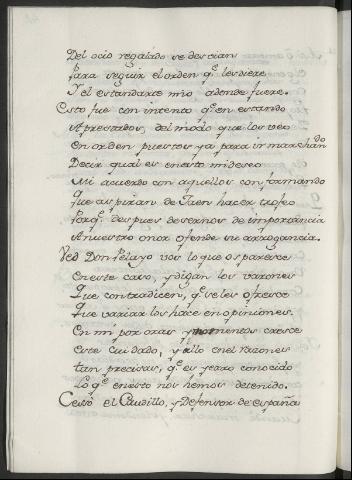 Del ocio regalado se desvian
Para seguir el orden qe. les diere
Y el estandarte mio adonde fuere.
Esto fue con intento qe. en estando
Aprestados, del modo que los veo
En orden, puestos ya para ir marchando
Decir qual es en esto mi deseo
Mi acuerdo con aquellos conformando
Que aspiran de Jaen hacer trofeo
Porqe. despues de sernos de importancia
A nuestro onor ofende su arrogancia.
Ved Don Pelayo vos lo que os parece
En este caso, y digan los varones
Que contradicen, qe. se les ofrece
Que variar los hace en opiniones.
En mi por oras y momentos crece
Este cuidado, y allo en el razones
tan precisas, qe. es yerro conocido
Lo qe. en esto nos hemos detenido.
Cesó el Caudillo, y Defensor de españa